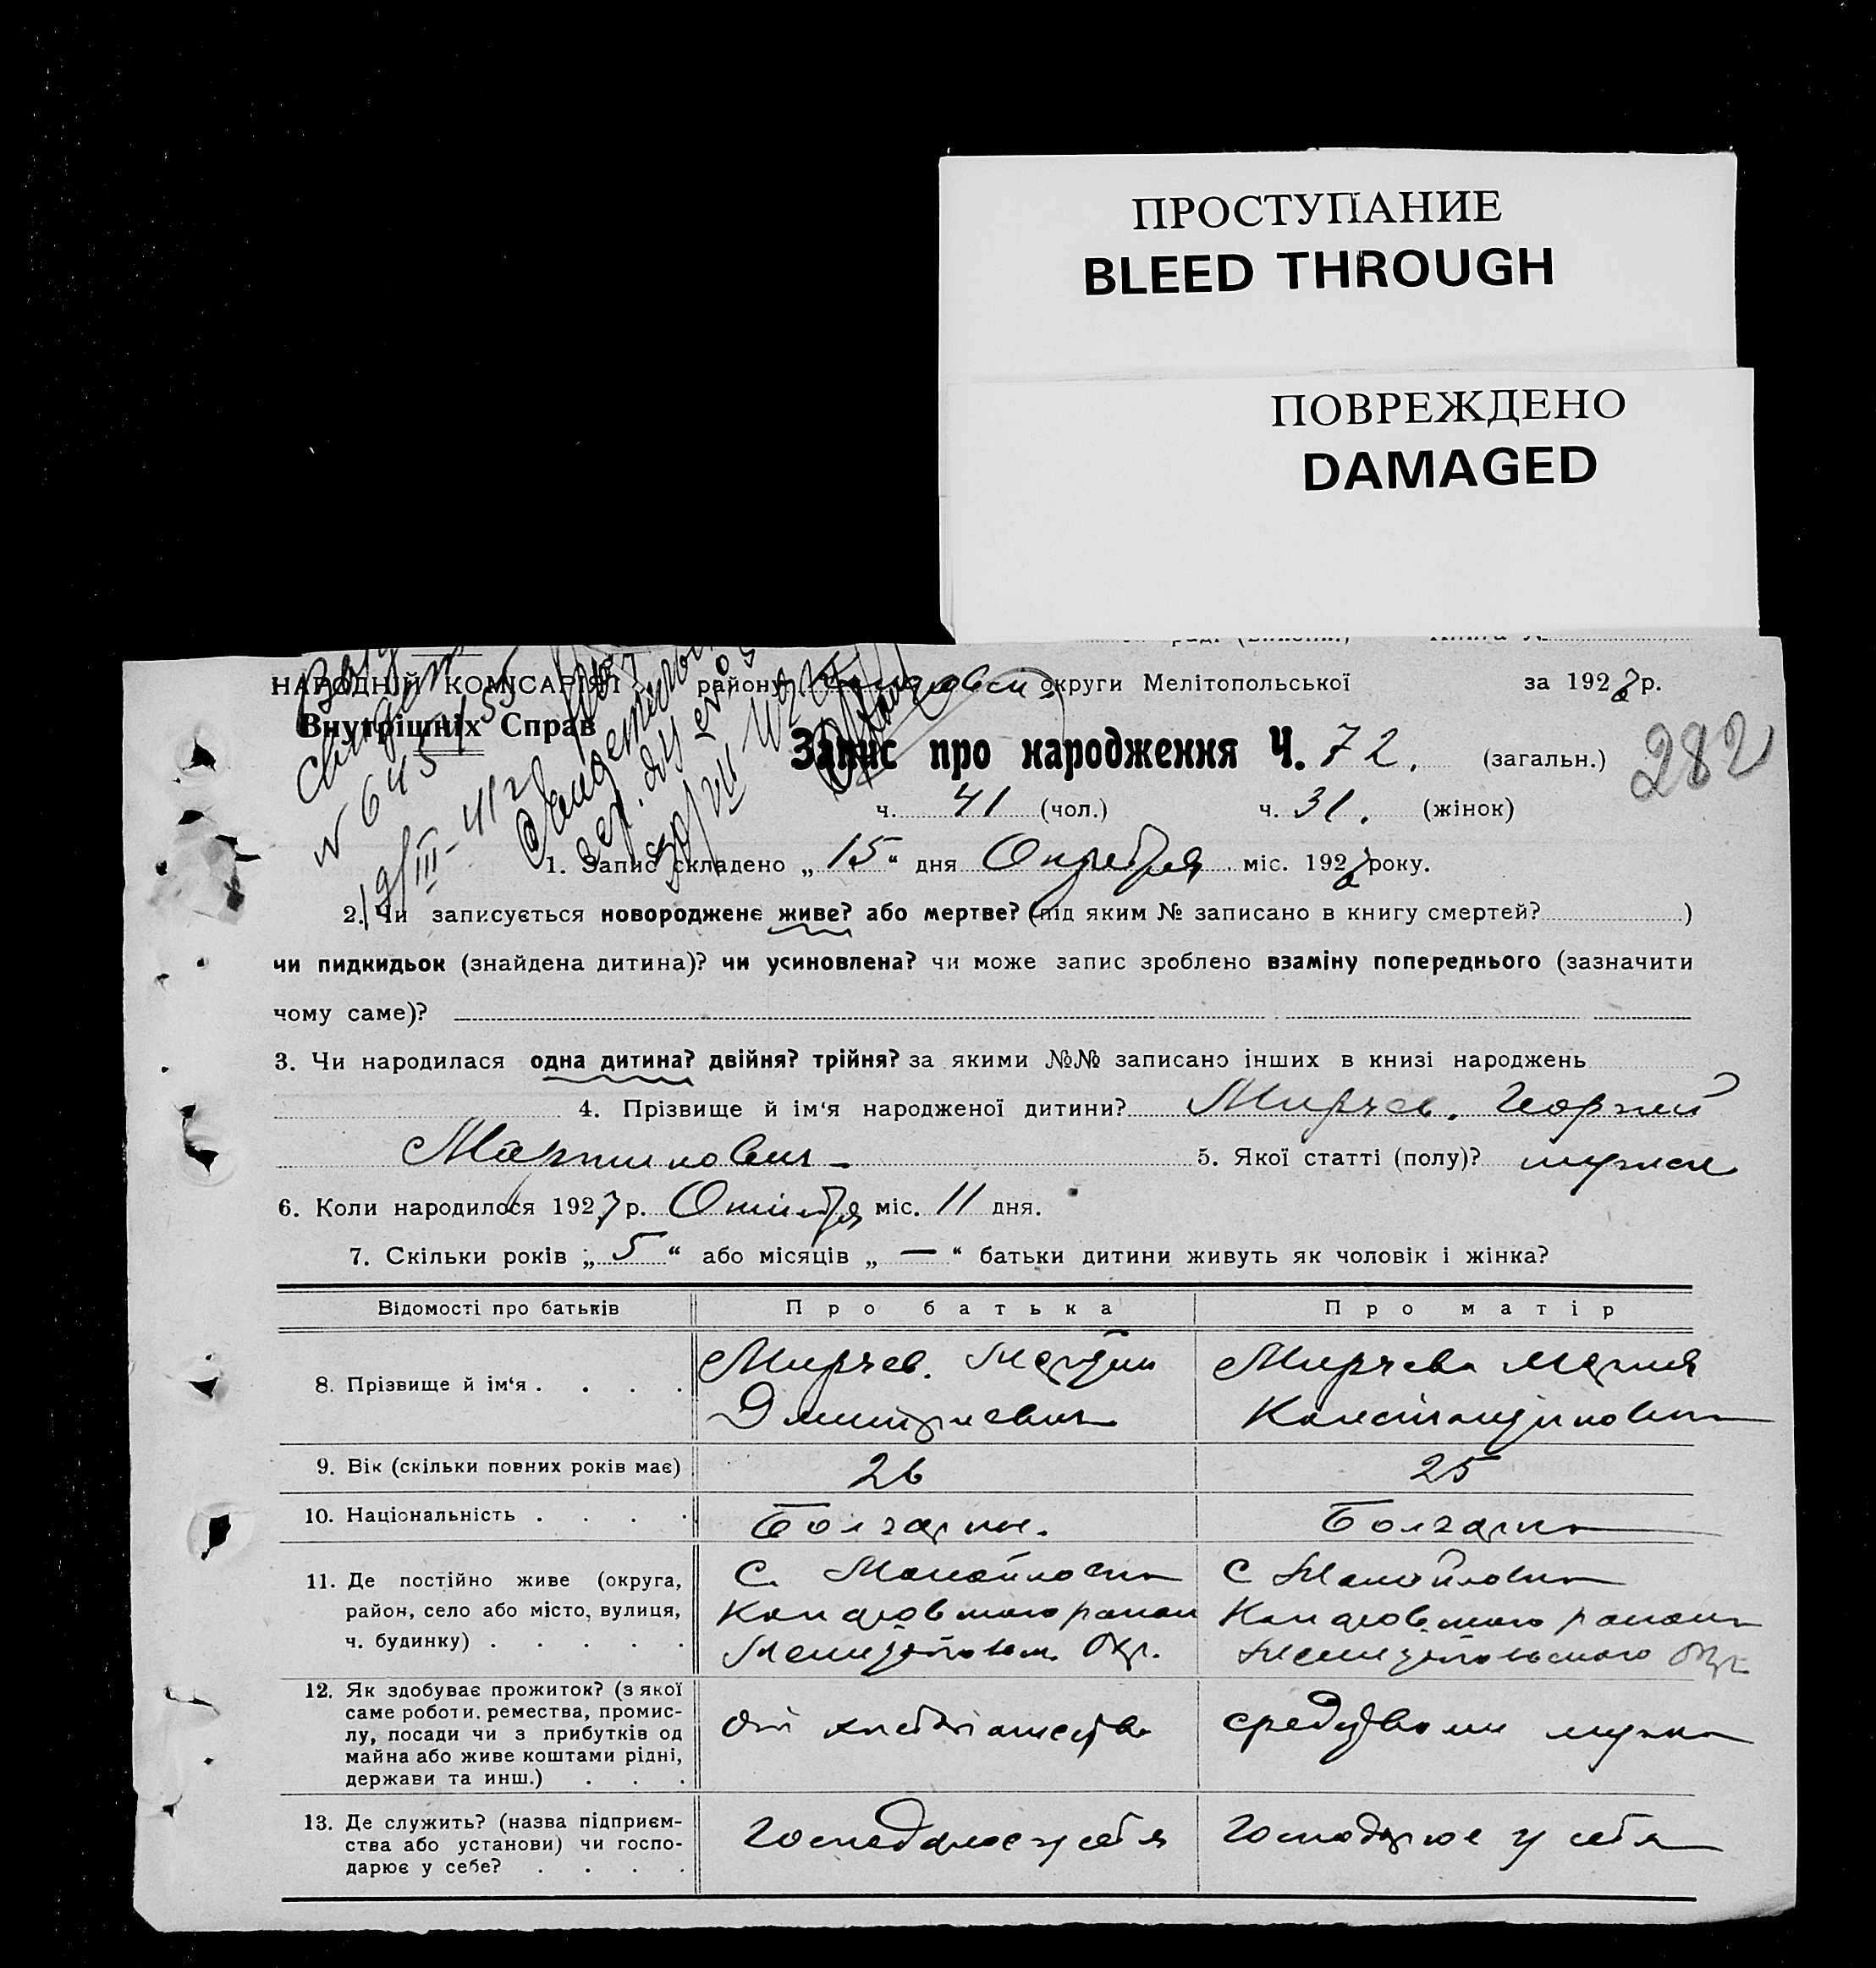 ПРОСТУПАНИЕ
BLEED THROUGH
ПОВРЕЖДЕНО
DAMAGED
НАРОДНІЙ КОМІСАРІЯТ району округи Мелітопольської за 1927 р.
Внутрішніх Справ
Запис про народження Ч. 72. (загальн.) 282
ч. 41 (чол.) ч. 31. (жінок)
N 645
19/III-41 г
1. Запис складено „ 15 “ дня Октября міс. 1927 року.
2. Чи записується новороджене живе? або мертве? (під яким № записано в книгу смертей? )
чи пидкидьок (знайдена дитина)? чи усиновлена? чи може запис зроблено взаміну попереднього (зазначити
чому саме)?
3. Чи народилася одна дитина? двійня? трійня? за якими №№ записано інших в книзі народжень
4. Прізвище й ім‘я народженої дитини? Мирчев. Георгий
Мартинович 5. Якої статті (полу)? мужск
6. Коли народилося 1927 р. Октября міс. 11 дня.
7. Скільки років „ 5 “ або місяців „ — “ батьки дитини живуть як чоловік і жінка?
Відомості про батьків Про батька Про матір
8. Прізвище й ім‘я . . . . Мирчев. Мартин Мирчева Мария
Дмитриевич Константиновна
9. Вік (скільки повних років має) 26 25
10. Національність . . . . Болгарин. Болгарка
11. Де постійно живе (округа, С. Манойловка С Манойловка
район, село або місто, вулиця, Коларовского район Коларовского района
ч. будинку) . . . . . Мелитопольск. Окр. Мелитопольского Окр
12. Як здобуває прожиток? (з якої
саме роботи, ремества, промис-
лу, посади чи з прибутків од От хлебопашества средствами мужа
майна або живе коштами рідні,
держави та инш.) . . .
13. Де служить? (назва підприєм-
ства або установи) чи госпо- Господарює у себя Господарює у себя
дарює у себе? . . . .